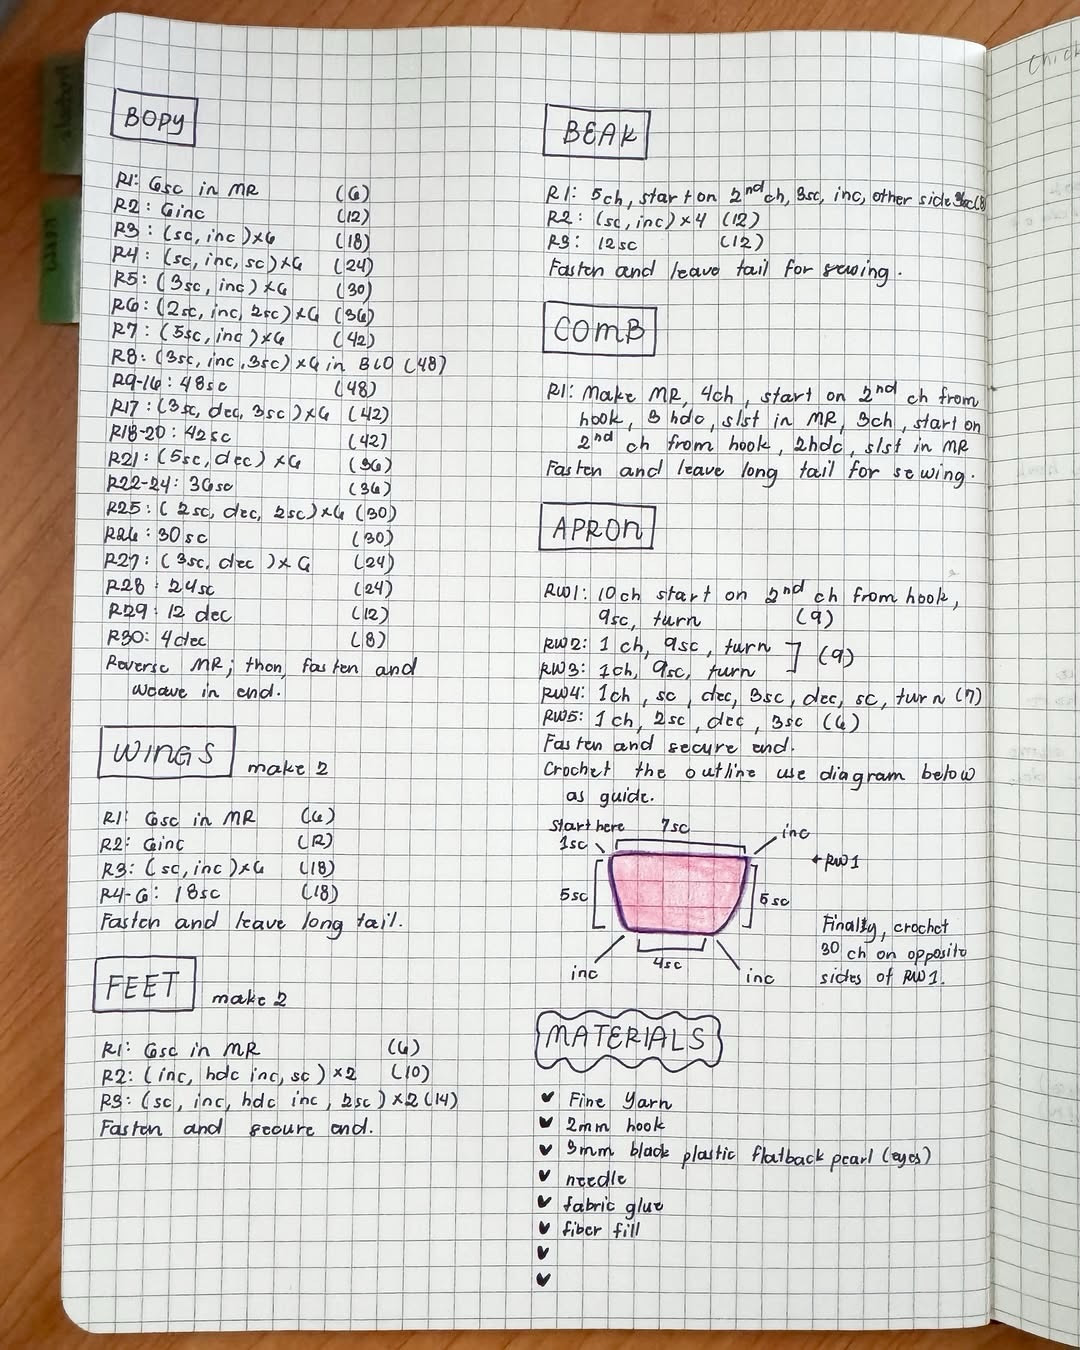 BODY
R1: 6sc in MR (6)
R2: 6inc (12)
R3: (sc, inc)x6 (18)
R4: (sc, inc, sc)x6 (24)
R5: (3sc, inc)x6 (30)
R6: (2sc, inc, 2sc)x6 (36)
R7: (5sc, inc)x6 (42)
R8: (3sc, inc, 3sc)x6 in BLO (48)
R9-16: 48sc (48)
R17: (3sc, dec, 3sc)x6 (42)
R18-20: 42sc (42)
R21: (5sc, dec)x6 (36)
R22-24: 36sc (36)
R25: (2sc, dec, 2sc)x6 (30)
R26: 30sc (30)
R27: (3sc, dec)x6 (24)
R28: 24sc (24)
R29: 12 dec (12)
R30: 4dec (8)
Reverse MR; then fasten and
weave in end.
WINGS make 2
R1: 6sc in MR (6)
R2: 6inc (12)
R3: (sc, inc)x6 (18)
R4-6: 18sc (18)
Fasten and leave long tail.
FEET make 2
R1: 6sc in MR (6)
R2: (inc, hdc inc, sc)x2 (10)
R3: (sc, inc, hdc inc, 2sc)x2 (14)
Fasten and secure end.
BEAK
R1: 5ch, start on 2nd ch, 3sc, inc, other side 3sc (8)
R2: (sc, inc)x4 (12)
R3: 12sc (12)
Fasten and leave tail for sewing.
COMB
R1: Make MR, 4ch, start on 2nd ch from
hook, 3 hdc, slst in MR, 3ch, start on
2nd ch from hook, 2hdc, slst in MR
Fasten and leave long tail for sewing.
APRON
RW1: 10ch start on 2nd ch from hook,
9sc, turn (9)
RW2: 1ch, 9sc, turn ] (9)
RW3: 1ch, 9sc, turn
RW4: 1ch, sc, dec, 3sc, dec, sc, turn (7)
RW5: 1ch, 2sc, dec, 3sc (6)
Fasten and secure end.
Crochet the outline use diagram below
as guide.
start here 7sc inc
1sc
←RW1
5sc 5sc
inc 4sc inc
Finally, crochet
30 ch on opposite
sides of RW1.
MATERIALS
✔ Fine Yarn
✔ 2mm hook
✔ 3mm black plastic flatback pearl (eyes)
✔ needle
✔ fabric glue
✔ fiber fill
✔
✔